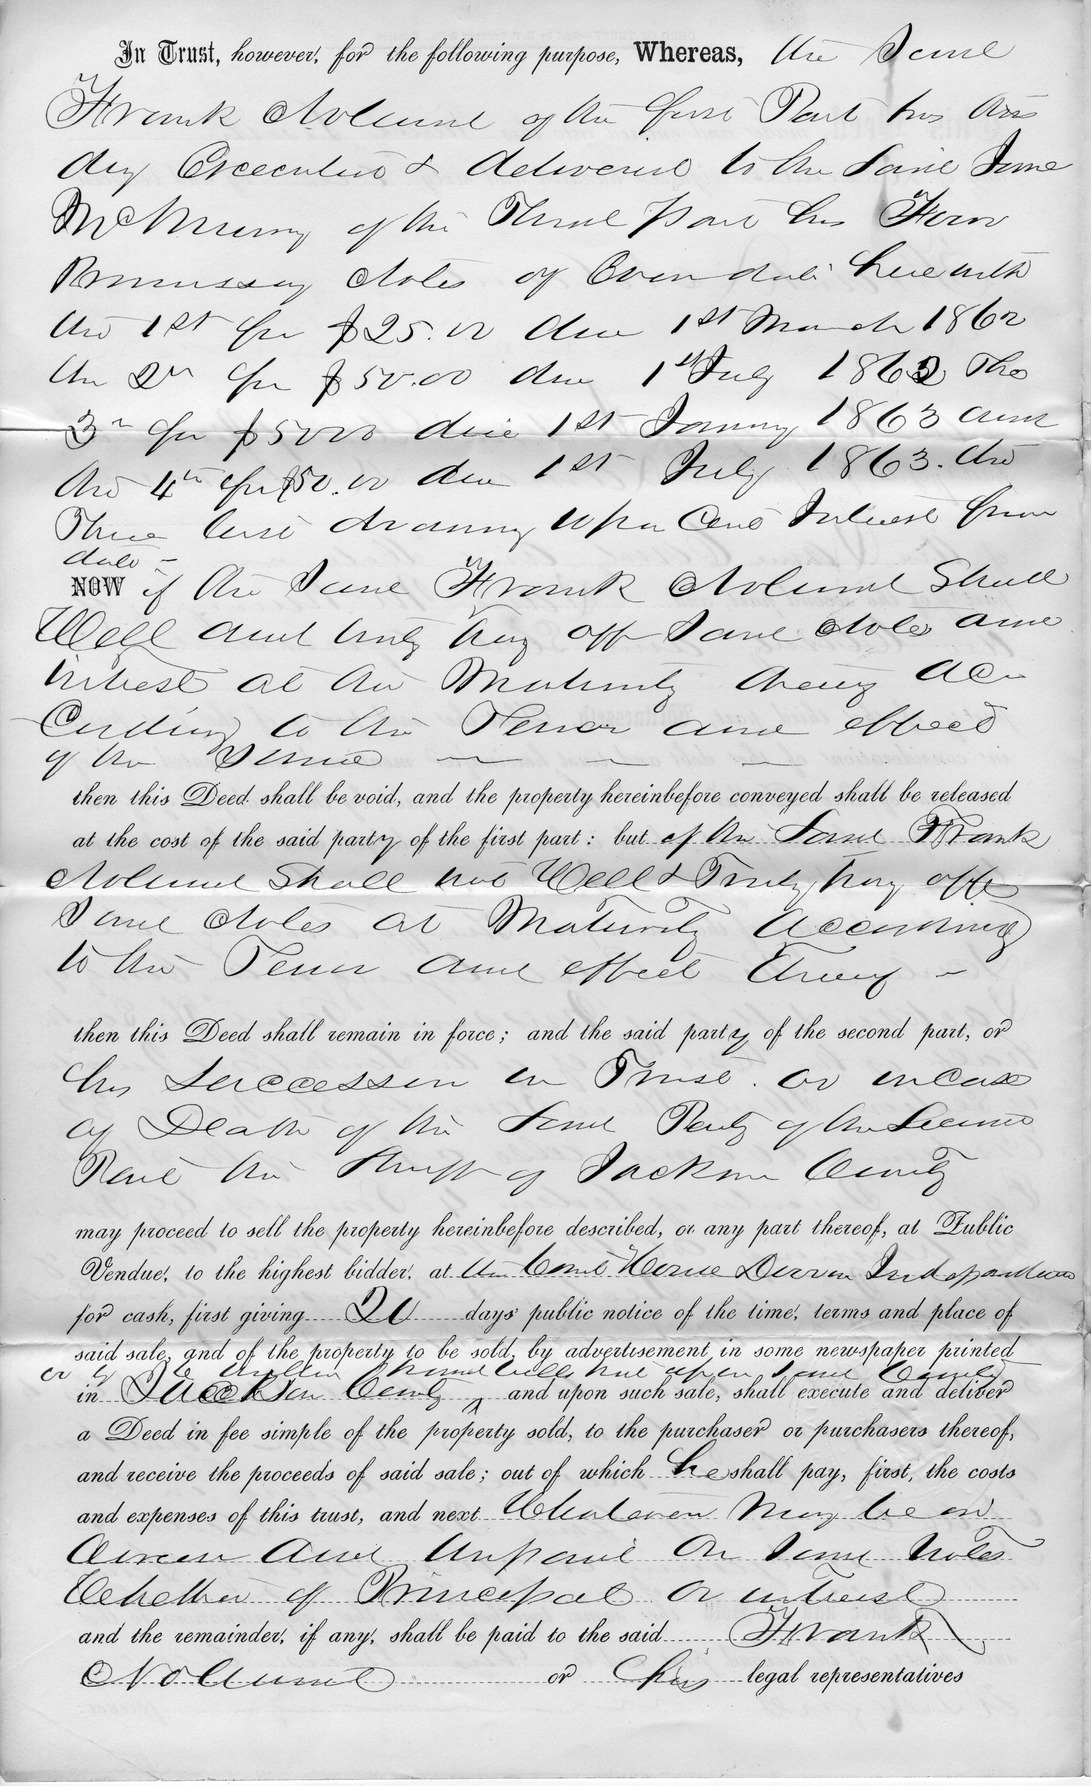 In Trust, however, for the following purpose, Whereas, the Said
Frank Noland of the first Part has this
day Executed & delivered to the Said
McMurry of the Third part his Four
Promissory Notes of Even date herewith
the 1st for $25.00 due 1st March 1862
the 2n for $50.00 due 1st July 1862 The
3n for $50.00 due 1st January 1863 and
the 4th for $50.00 due 1st July 1863. the
Three last drawing Cent Interest from
date –
NOW if the Said Frank Noland Shall
Well and truly Pay off Said Notes and
interest at the Maturity thereof ac
cording to the Tenor and effect
of the Same — — —
then this Deed shall be void, and the property hereinbefore conveyed shall be released
at the cost of the said party of the first part: but if the Said Frank
Noland Shall not Well & Truly Pay off
Said Notes at Maturity According
to the Tenor and effect thereof –
then this Deed shall remain in force; and the said party of the second part, or
his Successor in Trust. or in case
of Death of the Said Party of the Second
Part the Sheriff of Jackson County
may proceed to sell the property hereinbefore described, or any part thereof, at Public
Vendue, to the highest bidder, at the Court House Door in Independence
for cash, first giving 20 days' public notice of the time, terms and place of
said sale, and of the property to be sold, by advertisement in some newspaper printed
or by written hand bills put up in said County
in Jackson County ^ and upon such sale, shall execute and deliver
a Deed in fee simple of the property sold, to the purchaser or purchasers thereof,
and receive the proceeds of said sale; out of which he shall pay, first, the costs
and expenses of this trust, and next Whatever May be in
Arrear and Unpaid On Said Notes
Whether of Principal or interest
and the remainder, if any, shall be paid to the said Frank
Noland or his legal representatives